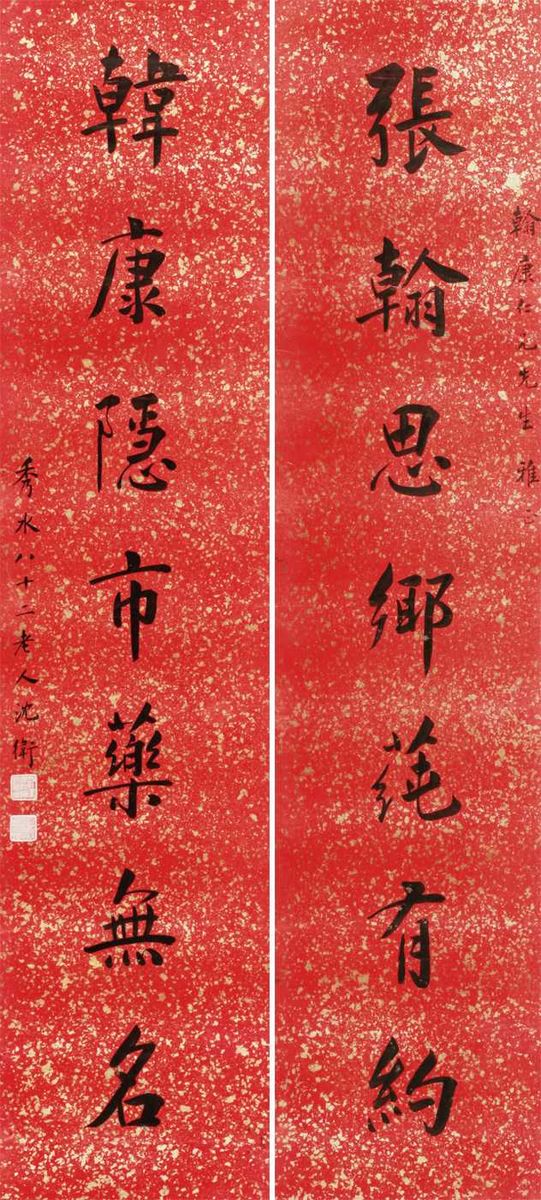 翰康仁兄先生雅正
張翰思鄉蒓有約
韓康隱市藥無名
秀水八十二老人沈衛